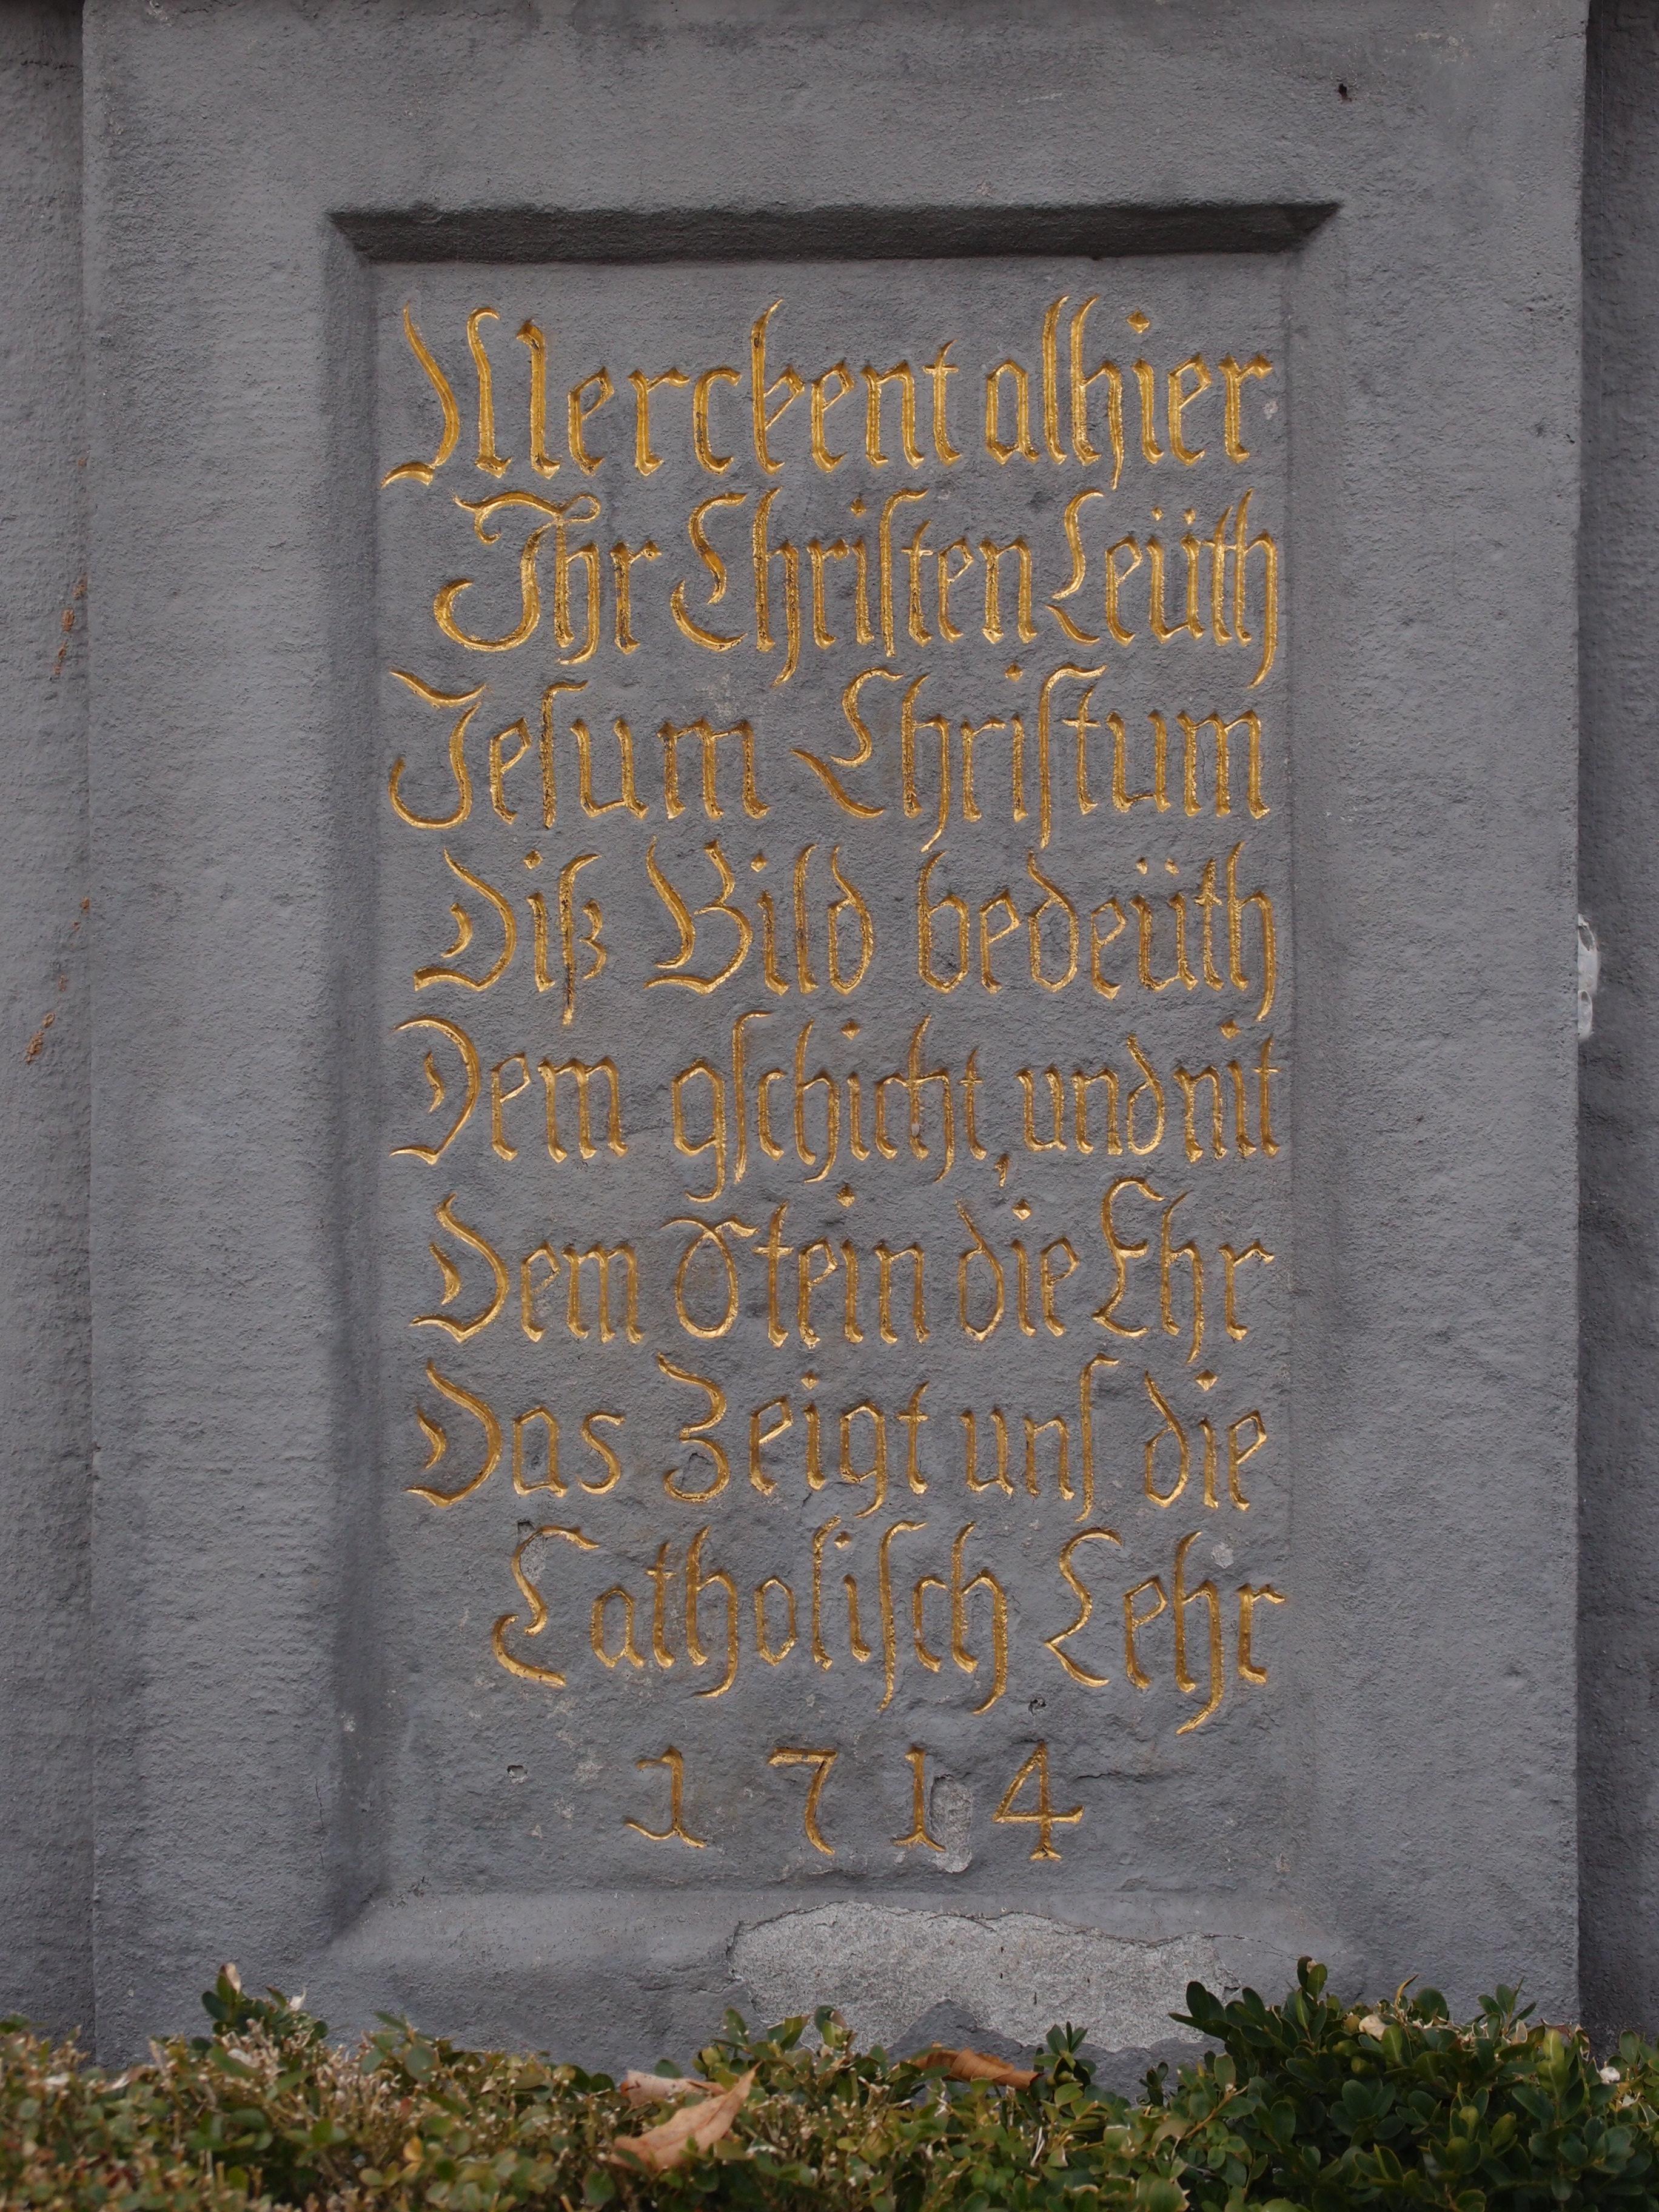 Merckent alhier
Ihr Christen Leüth
Jesum Christum
Diß Bild bedeüth
Dem gschicht, und nit
Dem Stein die Ehr
Das Zeigt uns die
Catholisch Lehr
1714